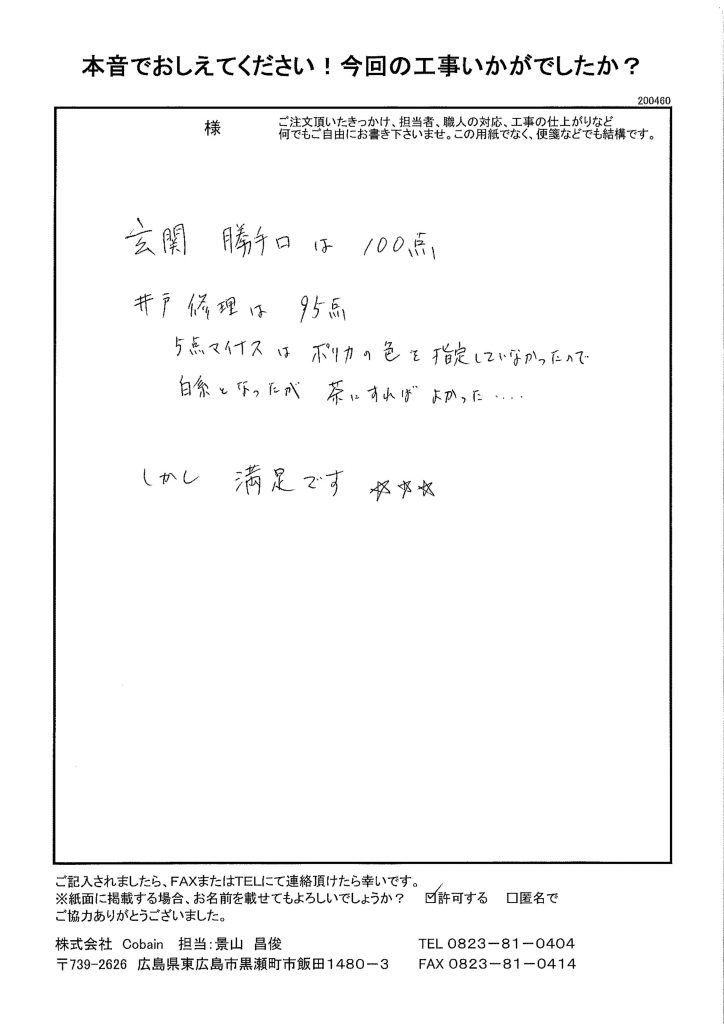 本音でおしえてください！今回の工事いかがでしたか？
200460
様
ご注文頂いたきっかけ、担当者、職人の対応、工事の仕上がりなど
何でもご自由にお書き下さいませ。この用紙でなく、便箋などでも結構です。
玄関 勝手口は 100点
井戸修理は 95点
5点マイナスは ポリカの色を指定していなかったので
白系となったが 茶にすればよかった‥‥
しかし 満足です ☆☆☆
ご記入されましたら、FAXまたはTELにて連絡頂けたら幸いです。
※紙面に掲載する場合、お名前を載せてもよろしいでしょうか？ ☑許可する □匿名で
ご協力ありがとうございました。
株式会社 Cobain 担当：景山 昌俊 TEL 0823－81－0404
〒739-2626 広島県東広島市黒瀬町市飯田1480－3 FAX 0823－81－0414